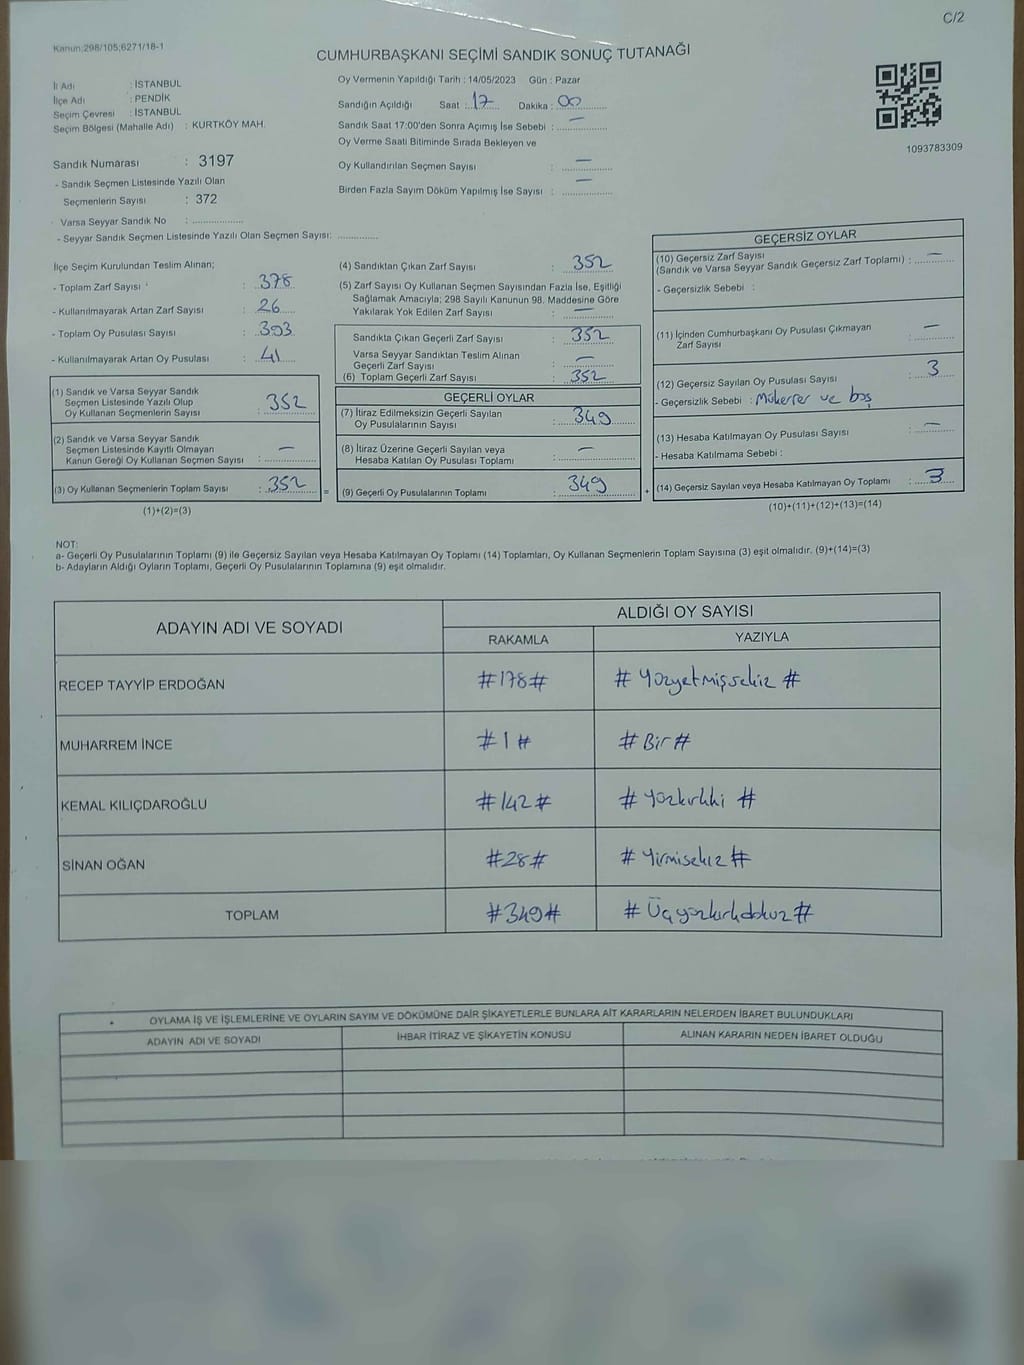 C/2
Kanun;298/105;6271/18-1
CUMHURBAŞKANI SEÇİMİ SANDIK SONUÇ TUTANAĞI
İl Adı : İSTANBUL
İlçe Adı : PENDİK
Seçim Çevresi : İSTANBUL
Seçim Bölgesi (Mahalle Adı) : KURTKÖY MAH.
Sandık Numarası : 3197
- Sandık Seçmen Listesinde Yazılı Olan
Seçmenlerin Sayısı : 372
- Varsa Seyyar Sandık No : ...................
- Seyyar Sandık Seçmen Listesinde Yazılı Olan Seçmen Sayısı: ...............
Oy Vermenin Yapıldığı Tarih : 14/05/2023 Gün : Pazar
Sandığın Açıldığı Saat : 17 Dakika : 00
Sandık Saat 17:00'den Sonra Açımış İse Sebebi : —
Oy Verme Saati Bitiminde Sırada Bekleyen ve
Oy Kullandırılan Seçmen Sayısı : —
Birden Fazla Sayım Döküm Yapılmış İse Sayısı : —
1093783309
İlçe Seçim Kurulundan Teslim Alınan;
- Toplam Zarf Sayısı : 378
- Kullanılmayarak Artan Zarf Sayısı : 26
- Toplam Oy Pusulası Sayısı : 393
- Kullanılmayarak Artan Oy Pusulası : 41
(1) Sandık ve Varsa Seyyar Sandık
Seçmen Listesinde Yazılı Olup
Oy Kullanan Seçmenlerin Sayısı : 352
(2) Sandık ve Varsa Seyyar Sandık
Seçmen Listesinde Kayıtlı Olmayan
Kanun Gereği Oy Kullanan Seçmen Sayısı : —
(3) Oy Kullanan Seçmenlerin Toplam Sayısı : 352 =
(1)+(2)=(3)
(4) Sandıktan Çıkan Zarf Sayısı : 352
(5) Zarf Sayısı Oy Kullanan Seçmen Sayısından Fazla İse, Eşitliği
Sağlamak Amacıyla; 298 Sayılı Kanunun 98. Maddesine Göre
Yakılarak Yok Edilen Zarf Sayısı : —
Sandıkta Çıkan Geçerli Zarf Sayısı : 352
Varsa Seyyar Sandıktan Teslim Alınan
Geçerli Zarf Sayısı : —
(6) Toplam Geçerli Zarf Sayısı : 352
GEÇERLİ OYLAR
(7) İtiraz Edilmeksizin Geçerli Sayılan
Oy Pusulalarının Sayısı : 349
(8) İtiraz Üzerine Geçerli Sayılan veya
Hesaba Katılan Oy Pusulası Toplamı : —
(9) Geçerli Oy Pusulalarının Toplamı : 349 +
GEÇERSİZ OYLAR
(10) Geçersiz Zarf Sayısı
(Sandık ve Varsa Seyyar Sandık Geçersiz Zarf Toplamı) : —
- Geçersizlik Sebebi :
(11) İçinden Cumhurbaşkanı Oy Pusulası Çıkmayan
Zarf Sayısı : —
(12) Geçersiz Sayılan Oy Pusulası Sayısı : 3
- Geçersizlik Sebebi : Mükerrer ve boş
(13) Hesaba Katılmayan Oy Pusulası Sayısı : —
- Hesaba Katılmama Sebebi :
(14) Geçersiz Sayılan veya Hesaba Katılmayan Oy Toplamı : 3
(10)+(11)+(12)+(13)=(14)
NOT:
a- Geçerli Oy Pusulalarının Toplamı (9) ile Geçersiz Sayılan veya Hesaba Katılmayan Oy Toplamı (14) Toplamları, Oy Kullanan Seçmenlerin Toplam Sayısına (3) eşit olmalıdır. (9)+(14)=(3)
b- Adayların Aldığı Oyların Toplamı, Geçerli Oy Pusulalarının Toplamına (9) eşit olmalıdır.
ADAYIN ADI VE SOYADI
ALDIĞI OY SAYISI
RAKAMLA YAZIYLA
RECEP TAYYİP ERDOĞAN #178# # Yüzyetmişsekiz #
MUHARREM İNCE #1# # Bir #
KEMAL KILIÇDAROĞLU #142# # yüzkırkiki #
SİNAN OĞAN #28# # Yirmisekiz #
TOPLAM #349# # Üçyüzkırkdokuz #
OYLAMA İŞ VE İŞLEMLERİNE VE OYLARIN SAYIM VE DÖKÜMÜNE DAİR ŞİKAYETLERLE BUNLARA AİT KARARLARIN NELERDEN İBARET BULUNDUKLARI
ADAYIN ADI VE SOYADI İHBAR İTİRAZ VE ŞİKAYETİN KONUSU ALINAN KARARIN NEDEN İBARET OLDUĞU